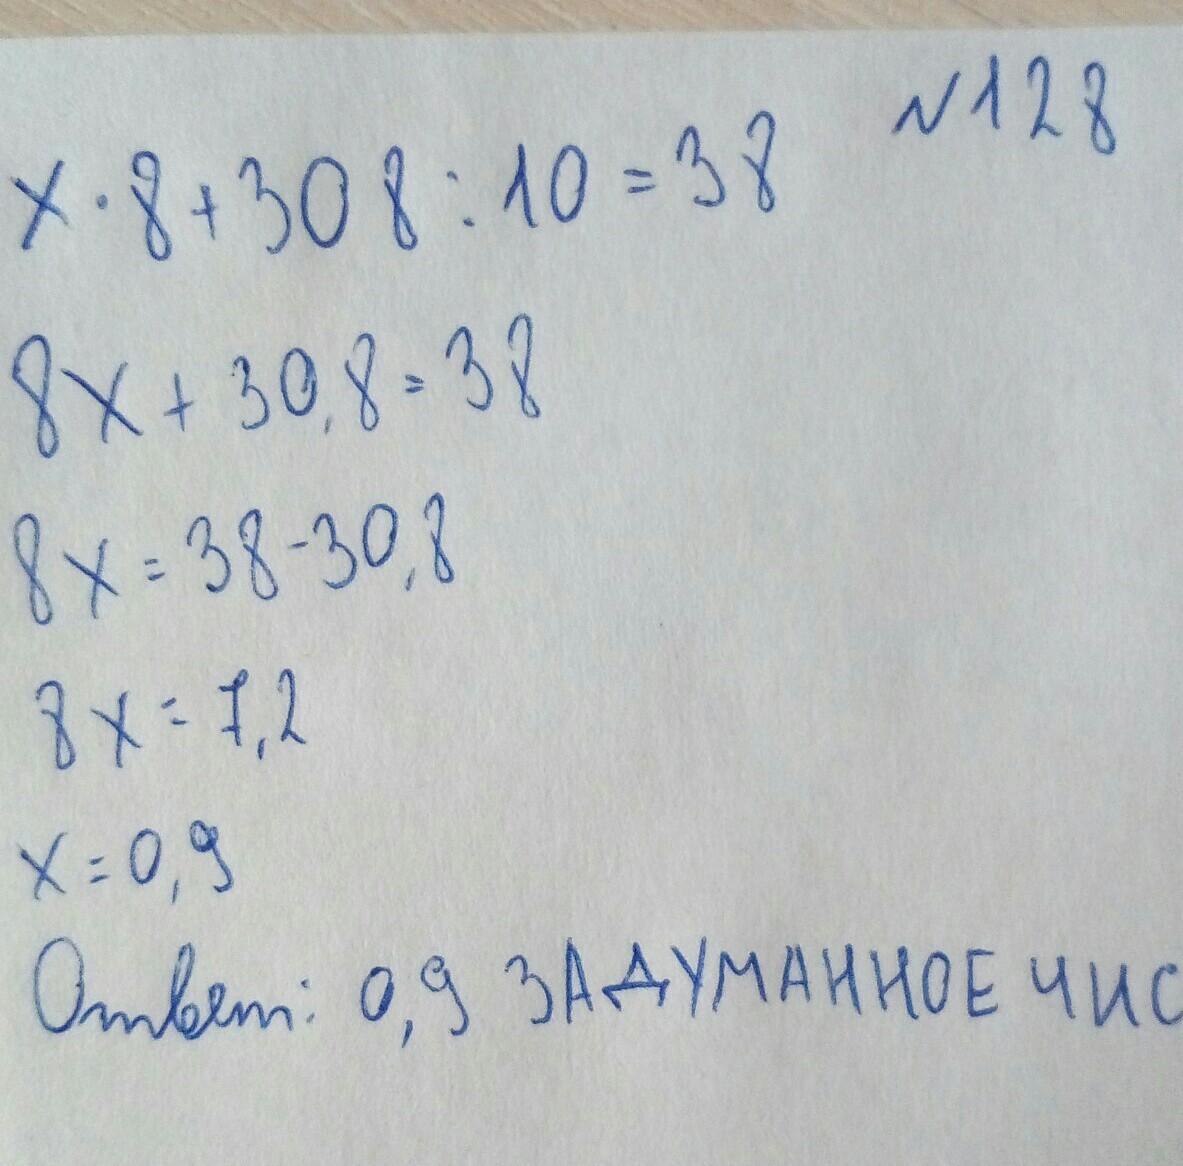 №128
x·8+308:10=38
8x+30,8=38
8x=38-30,8
8x=7,2
x=0,9
Ответ: 0,9 ЗАДУМАННОЕ ЧИС